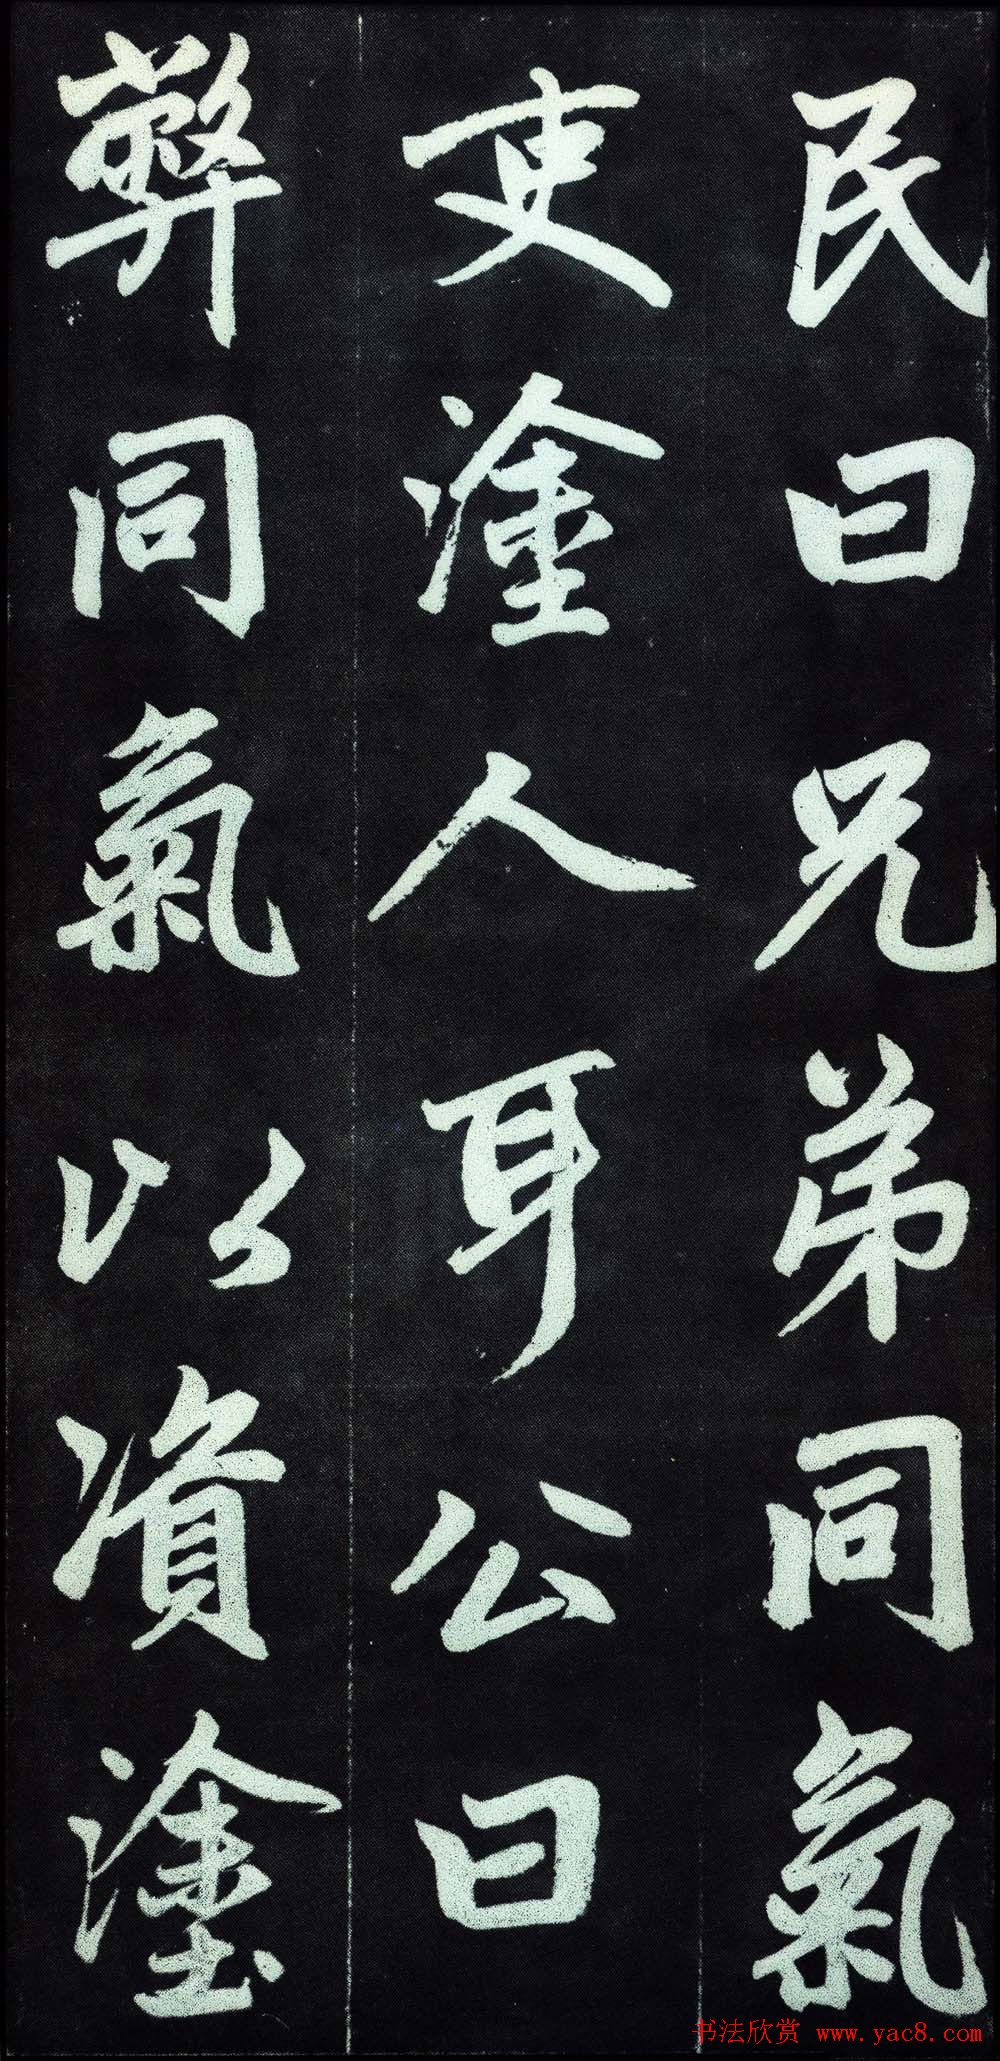 民曰兄弟同氣
吏塗人耳公曰
弊同氣以資塗
书法欣赏 www.yac8.com